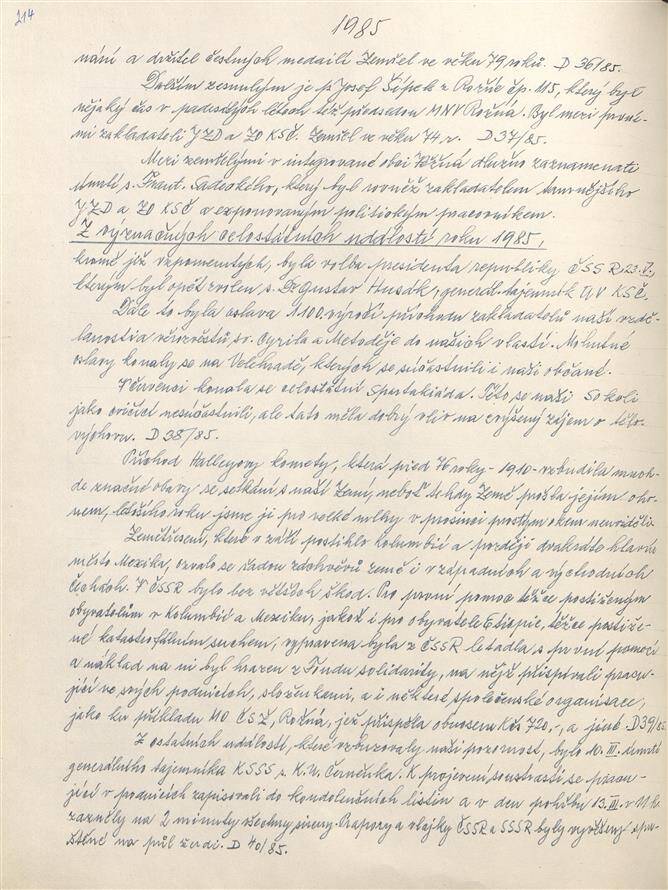 214
1985
nání a držitel čestných medailí Zemřel ve věku 79 roků. D 36/85.
Dalším zesnulým je p. Josef Šípek z Rožné čp. 115, který byl
nějaký čas v padesátých letech též předsedou MNV Rožná. Byl mezi první-
mi zakladateli JZD a ZO KSČ. Zemřel ve věku 74 r. D 37/85.
Mezi zemřelými v integrované obci dlužno zaznamenati
úmrtí s. Frant. Sadeckého, který byl rovněž zakladatelem tamnějšího
JZD a ZO KSČ a exponovaným politickým pracovníkem.
Z význačných celostátních událostí roku 1985,
kromě již vzpomenutých, byla volba presidenta republiky ČSSR 23. V.,
kterým byl opět zvolen s. Dr Gustav Husák, generál. tajemník ÚV KSČ.
Dále to byla oslava 1.100. výročí příchodu zakladatelů naší vzdě-
lanosti a věrozvěstů sv. Cyrila a Metoděje do našich vlastí. Mohutné
oslavy konaly se na Velehradě, kterých se súčastnili i naši občané.
V červenci konala se celostátní Spartakiáda. Této se naši Sokoli
jako cvičící nesúčastnili, ale tato měla dobrý vliv na zvýšený zájem o tělo-
výchovu. D 38/85.
Příchod Halleyovy komety, která před 76 roky - 1910 - vzbudila mnoh-
de značné obavy se setkání s naší Zemí, neboť tehdy Země prošla jejím oho-
nem, letošího roku jsme ji pro velké mlhy v prosinci prostým okem neuviděli.
Zemětřesení, které v září postihlo Kolumbii a později dvakráte hlavní
město Mexika, ozvalo se řadou záchvěvů země i v západních a východních
Čechách. V ČSSR bylo bez větších škod. Pro první pomoc těžce postiženým
obyvatelům v Kolumbii a Mexiku, jakož i pro obyvatele Etiopie, těžce postiže-
né katastrofálním suchem, vypravena byla z ČSSR letadla s první pomocí
a náklad na ni byl hrazen z Fondu solidarity, na nějž přispívali pracu-
jící ve svých podnicích, složenkami, a i některé společenské organisace,
jako ku příkladu MO ČSŽ, Rožná, jež přispěla obnosem Kčs 720,-, a jiné. D 39/85
Z ostatních událostí, které vzbuzovaly naši pozornost, bylo 10. III. úmrtí
generálního tajemníka KSSS s. K. U. Černěnka. K projevení soustrasti se pracu-
jící v podnicích zapisovali do kondolenčních listin a v den pohřbu 13. III. v 11 h.
zazněly na 2 minuty všechny sireny. Prapory a vlajky ČSSR a SSSR byly vyvěšeny spu-
štěné na půl žerdi. D 40/85.